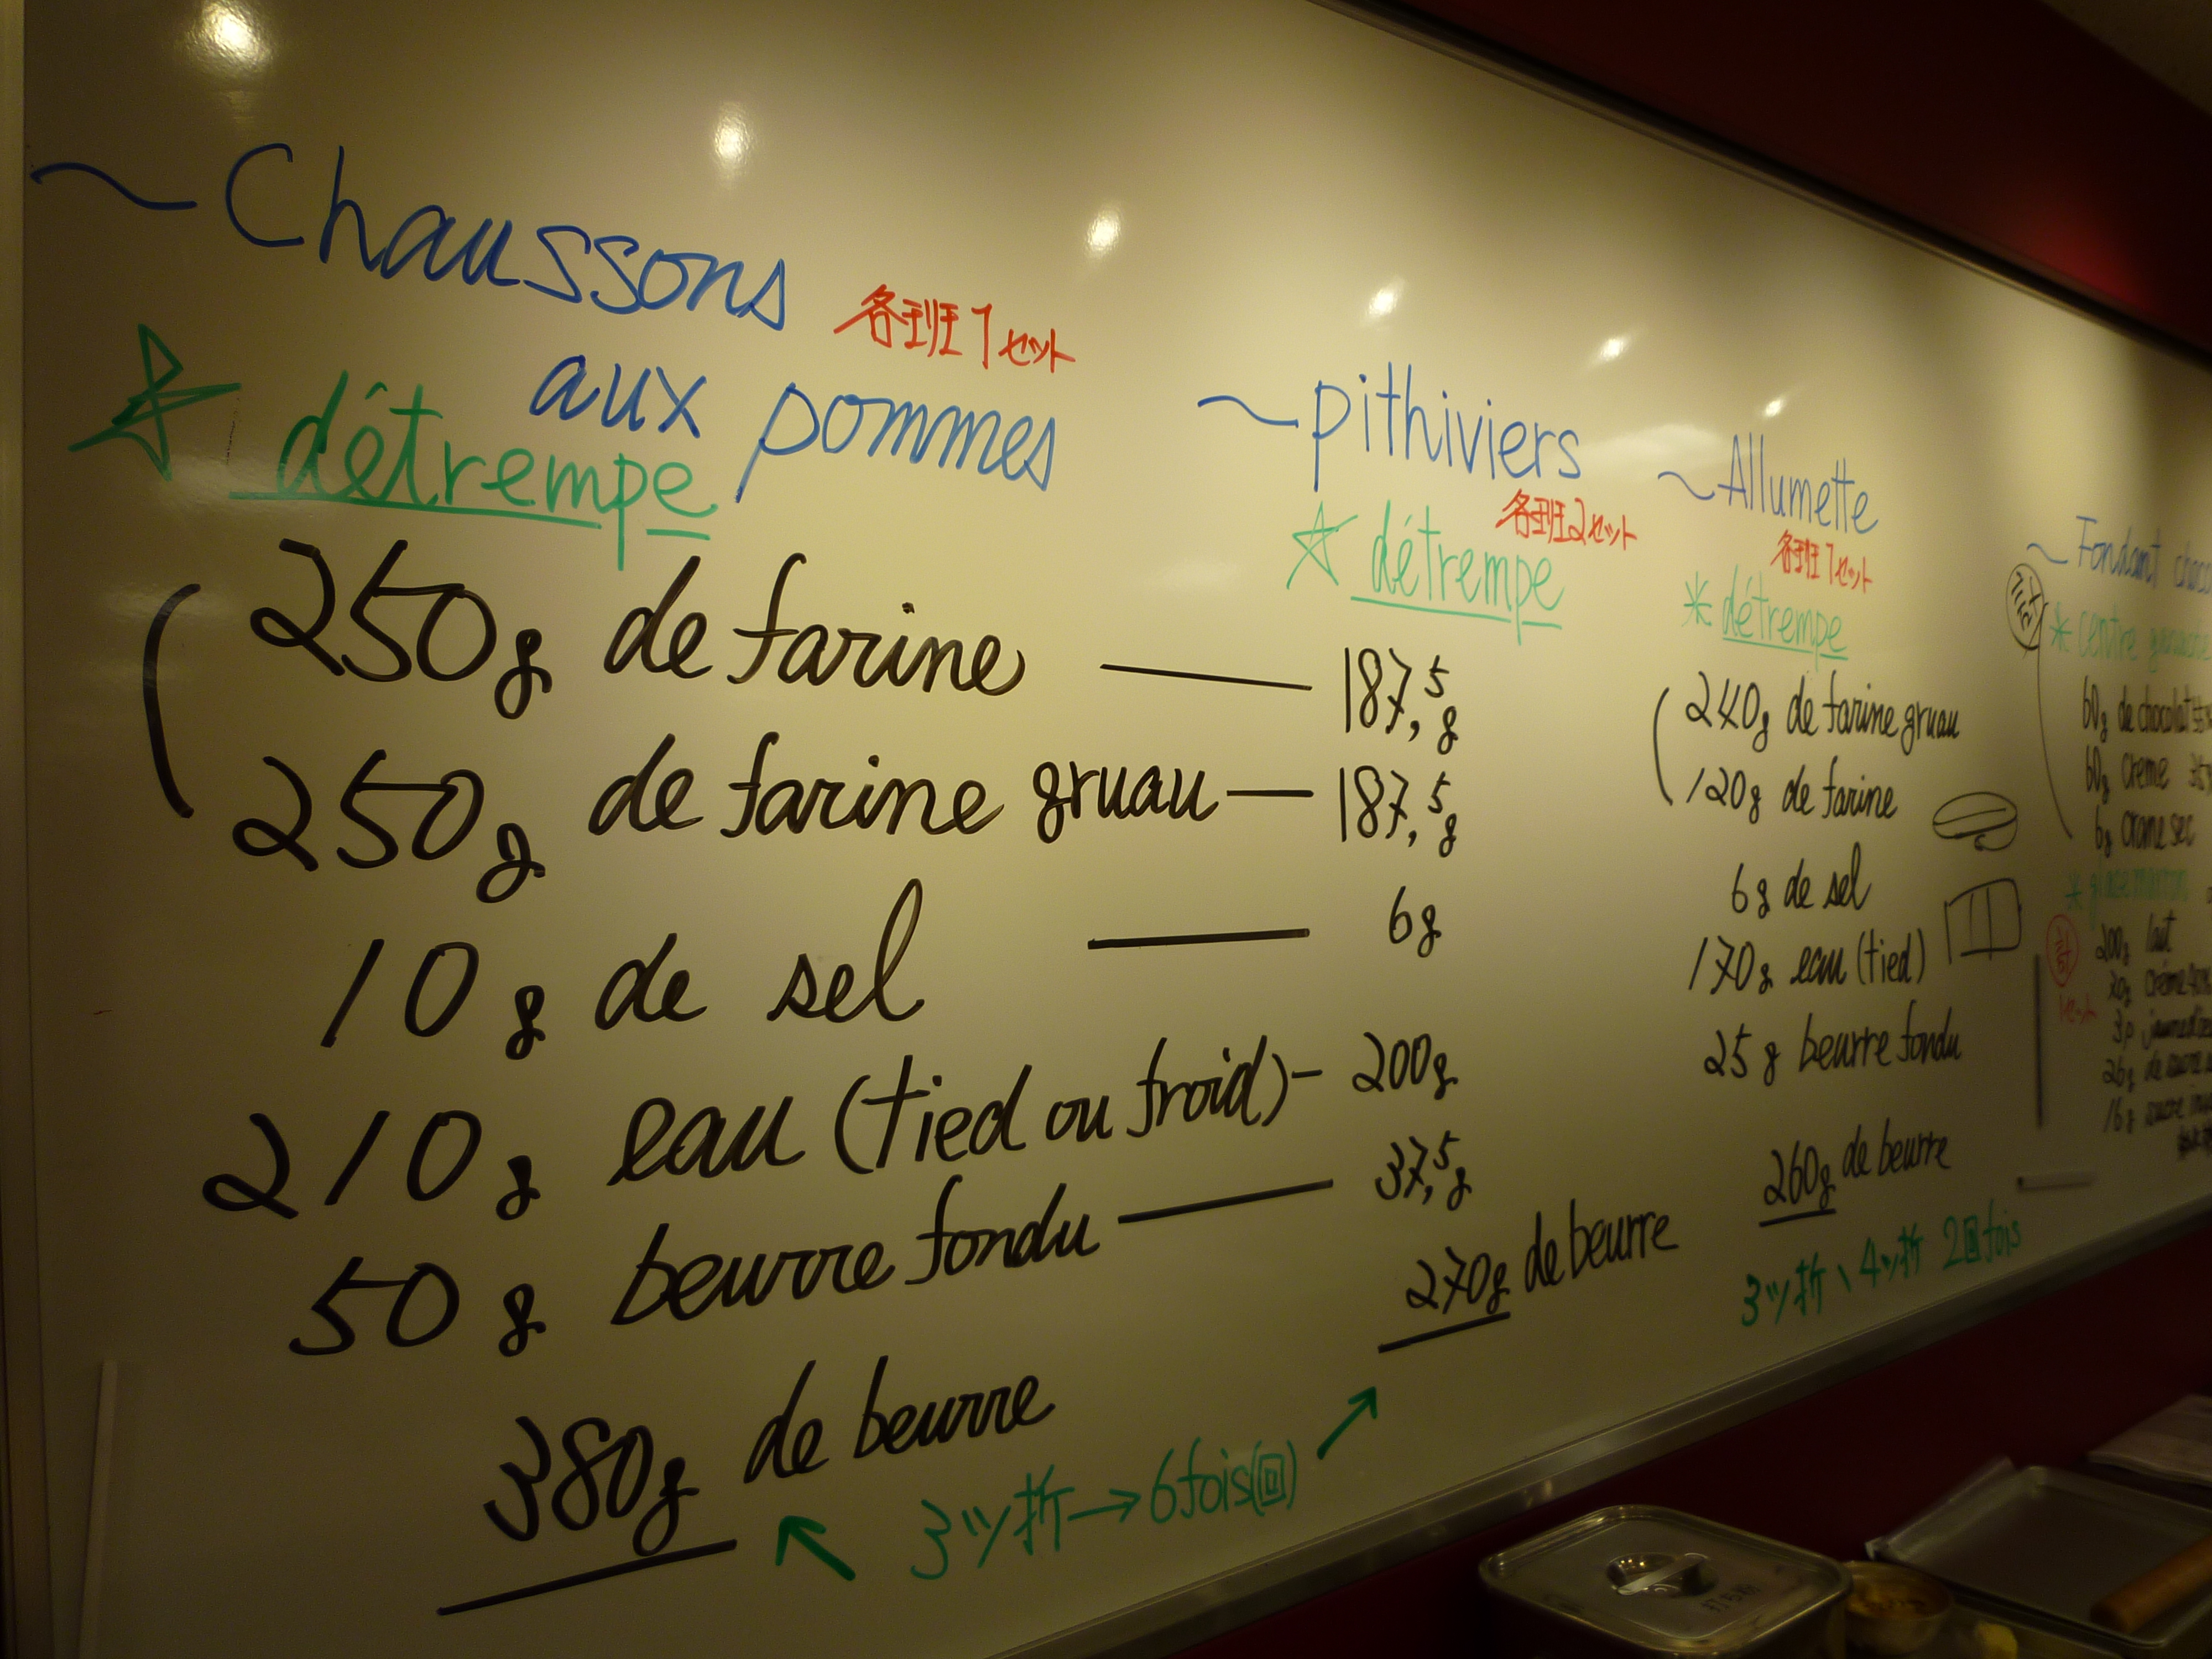 ~Chaussons
各班1セット
aux pommes
☆ détrempe
250g de farine
250g de farine gruau
10g de sel
210g eau (tied ou froid)
50g beurre fondu
380g de beurre
3ツ折→6fois(回)
~pithiviers
各班2セット
☆ détrempe
187,5g
187,5g
6g
200g
37,5g
270g de beurre
~Allumette
各班1セット
* détrempe
240g de farine gruau
120g de farine
6g de sel
170g eau (tied)
25g beurre fondu
260g de beurre
3ツ折、4ツ折 2回fois
~Fondant
* centre
60g de chocolat
60g creme
6g
計
200g lait
1セット
26g de sucre
16g sucre